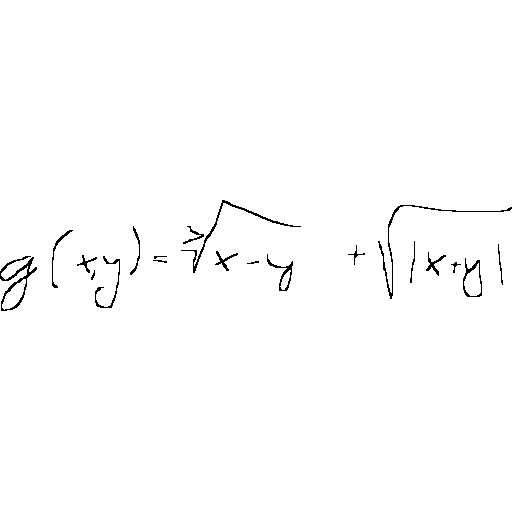 g(x,y) = √x-y + √|x+y|